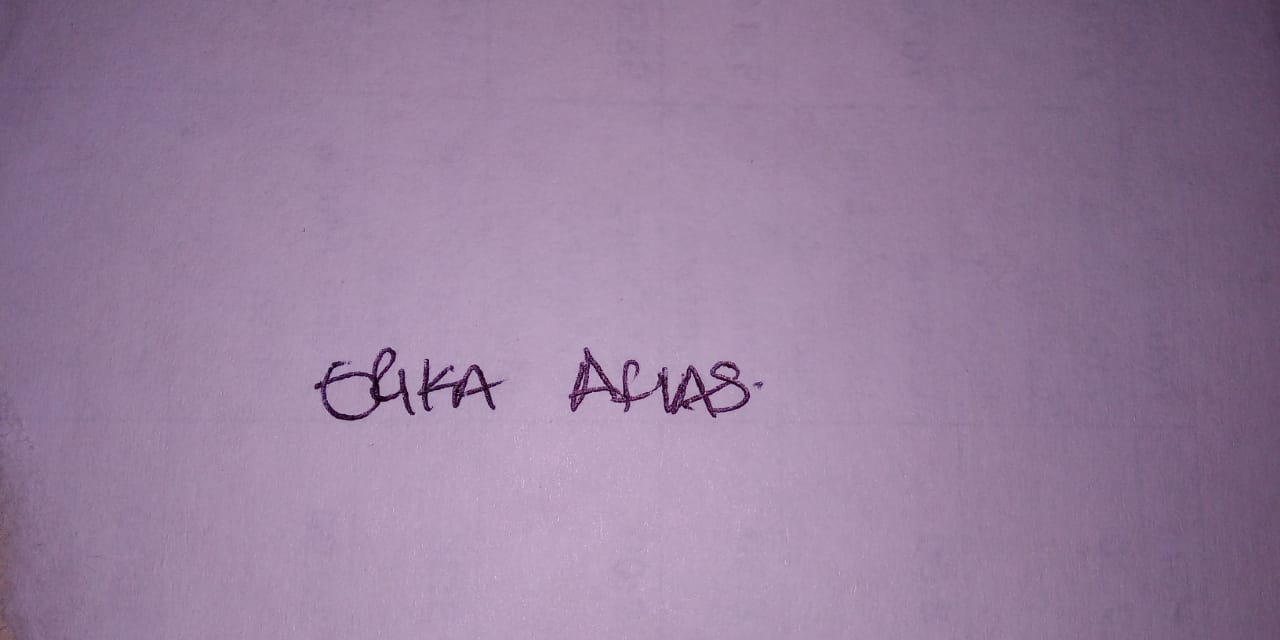 Erika Arias.